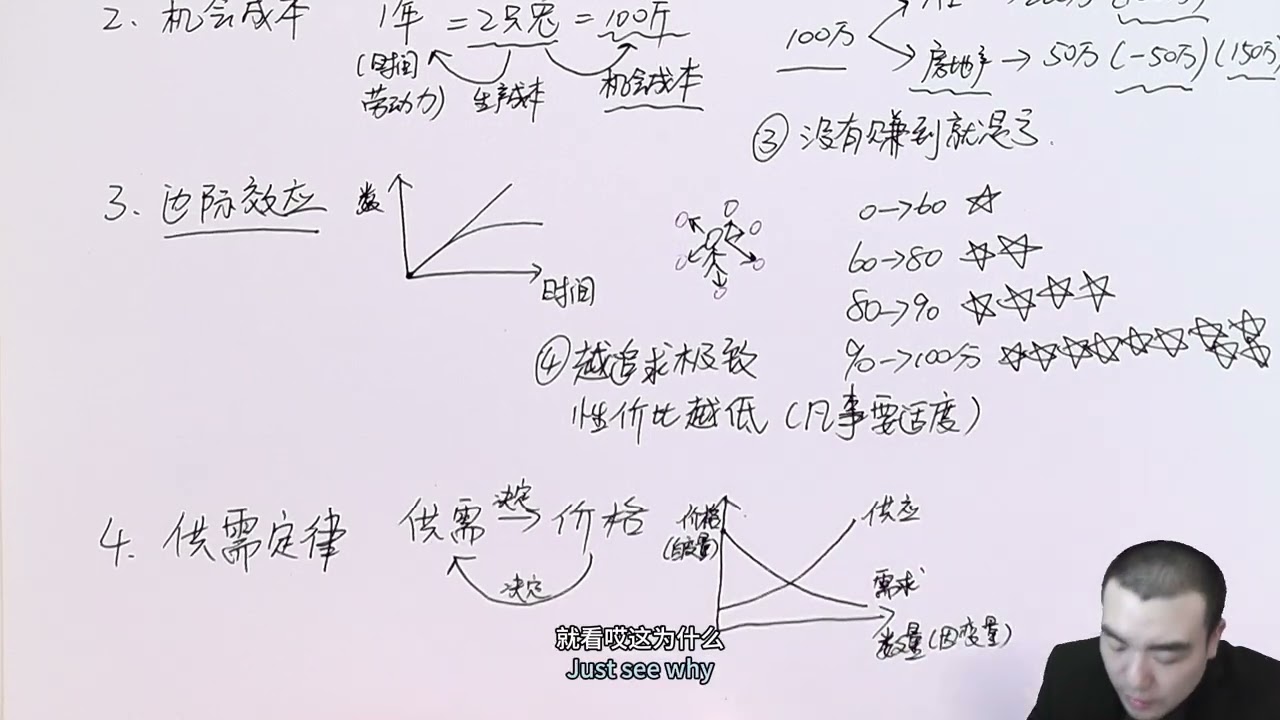 2、机会成本 1年 = 2只兔 = 100斤
(时间
劳动力) 生产成本 机会成本
100万
房地产 → 50万 (-50万) (150万
③ 没有赚到就是亏.
3、边际效应
数
时间
0→60 ☆
60→80 ☆☆
80→90 ☆☆☆☆
90→100分
④ 越追求极致
性价比越低 (凡事要适度)
4、供需定律 供需 决定 → 价格
决定
价格
(自变量)
供应
需求
数量(因变量)
就看哎这为什么
Just see why